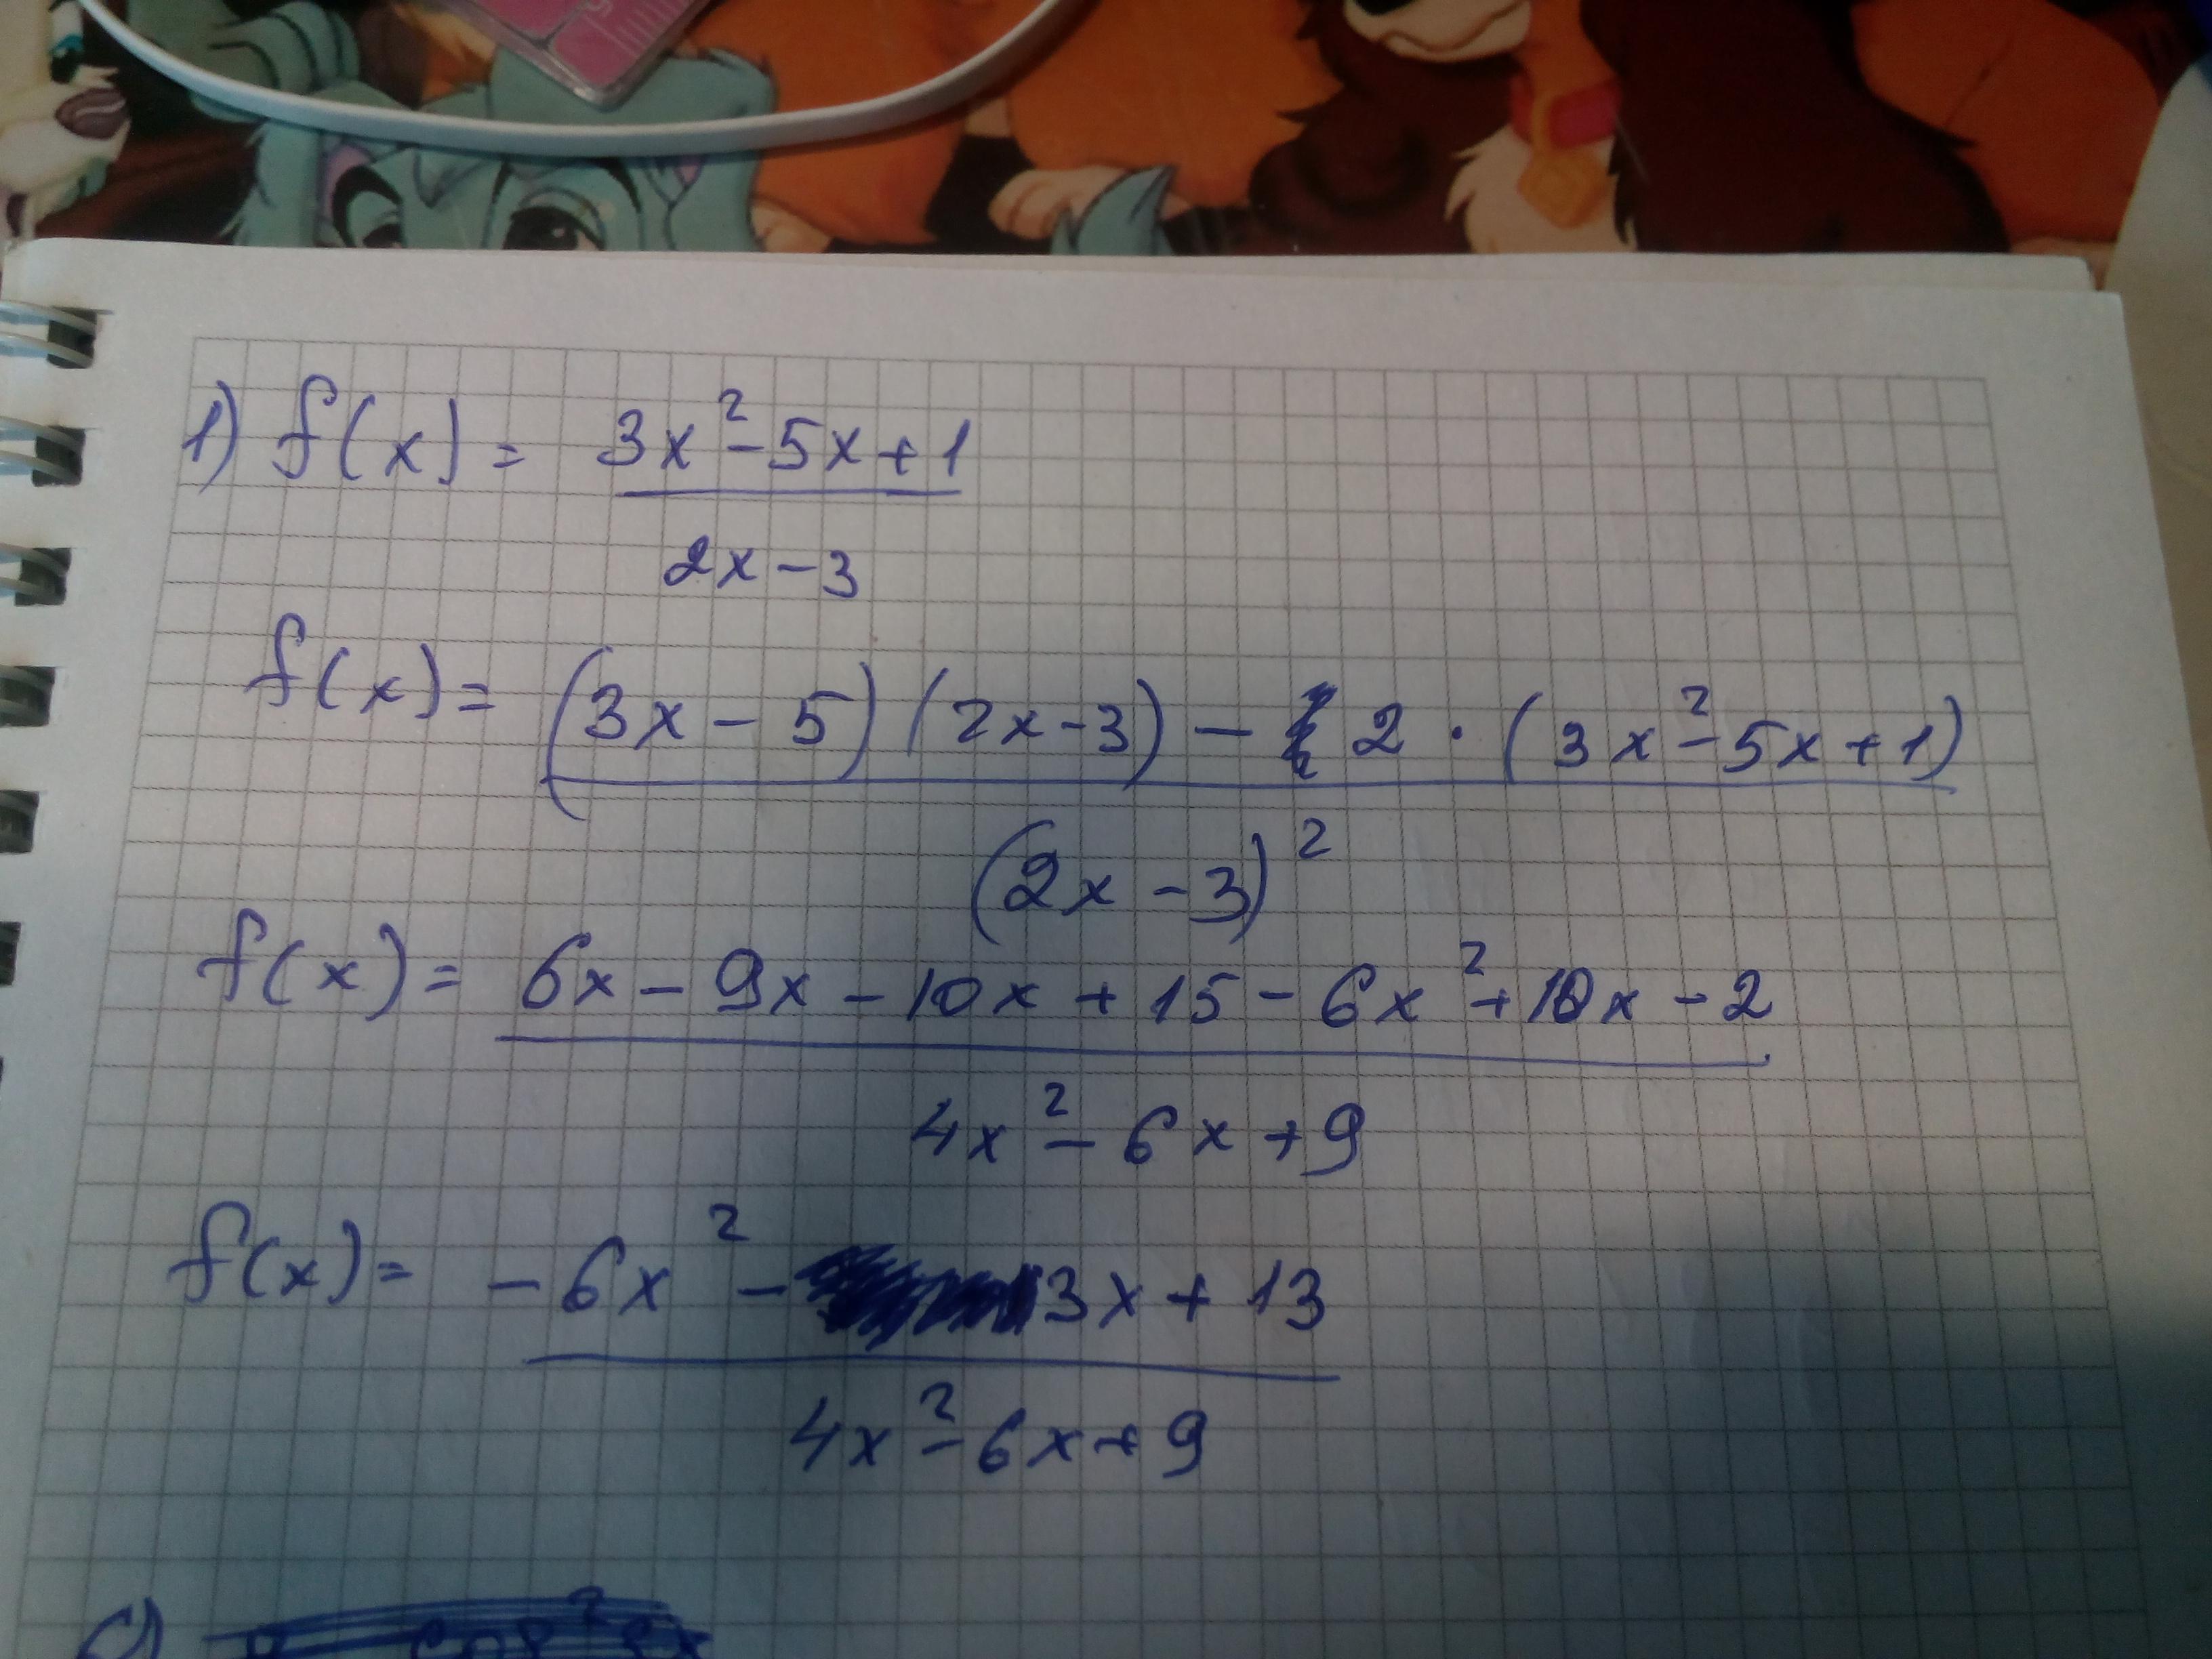 1) f(x) = 3x²-5x+1
2x-3
f(x) = (3x-5)(2x-3) - 2 · (3x²-5x+1)
(2x-3)²
f(x) = 6x-9x-10x+15-6x²+10x-2
4x²-6x+9
f(x) = -6x²-3x+13
4x²-6x+9